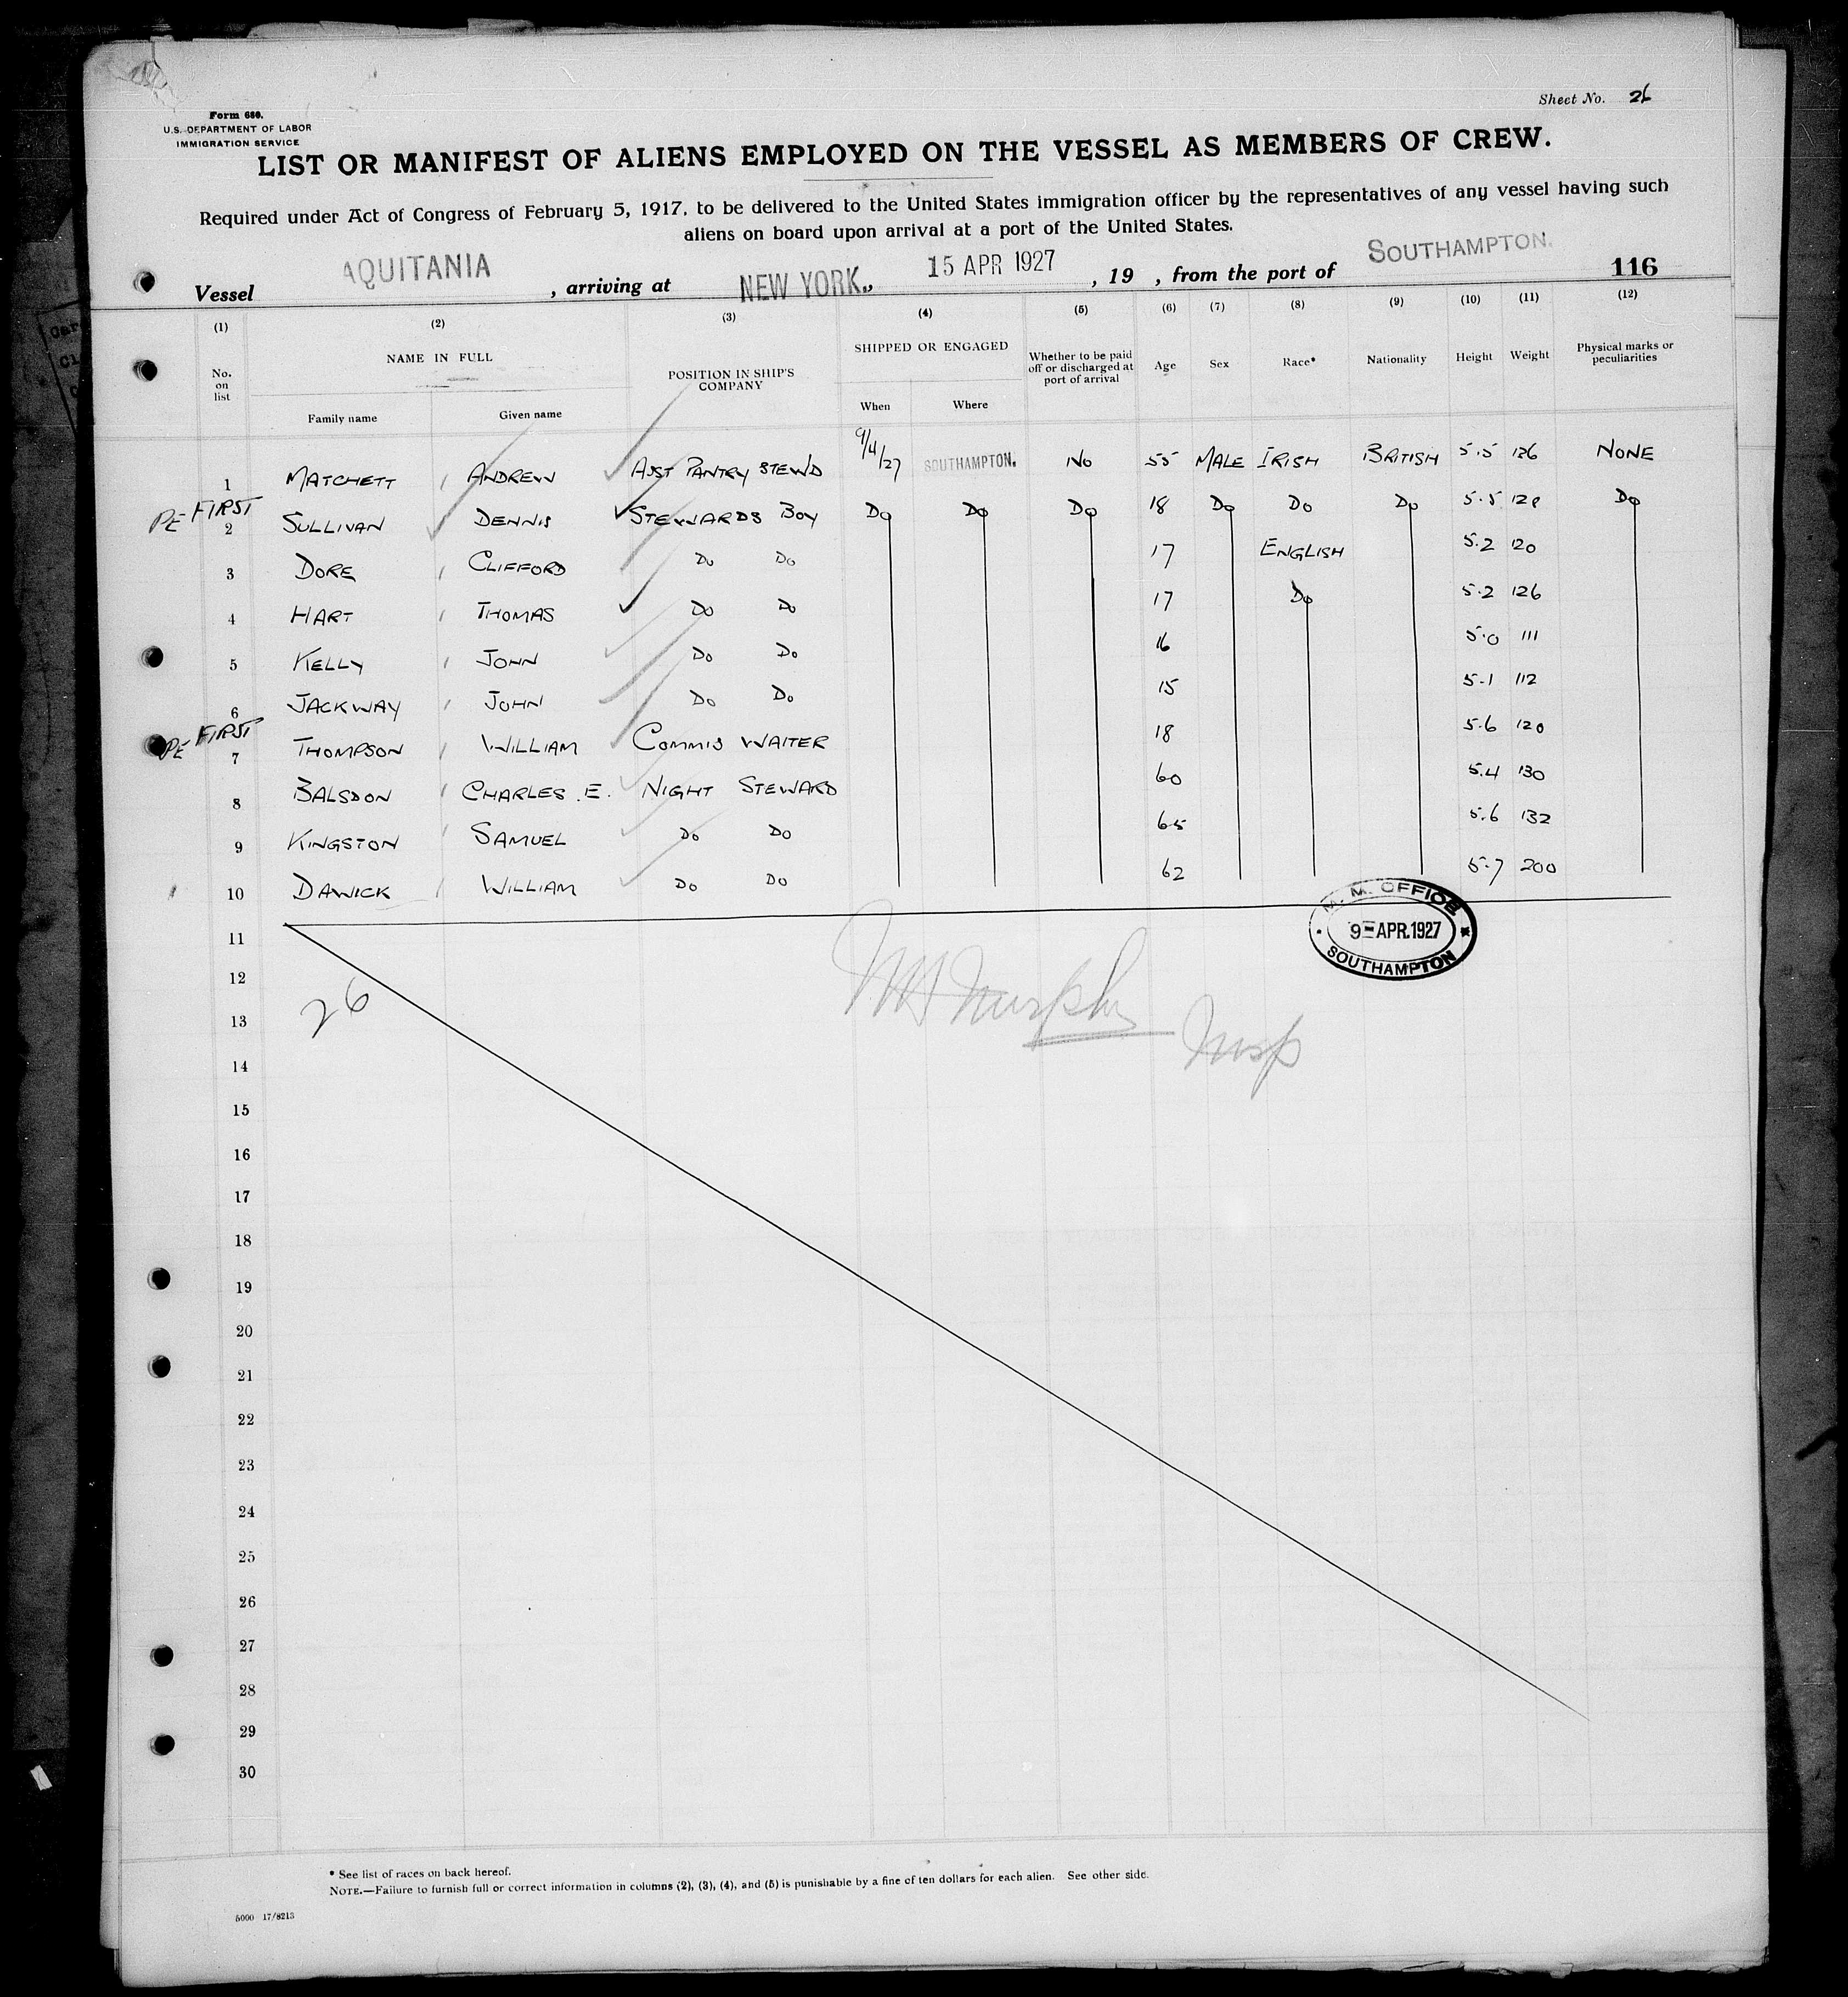 Sheet No. 26
Form 680.
U.S. DEPARTMENT OF LABOR
IMMIGRATION SERVICE
LIST OR MANIFEST OF ALIENS EMPLOYED ON THE VESSEL AS MEMBERS OF CREW.
Required under Act of Congress of February 5, 1917, to be delivered to the United States immigration officer by the representatives of any vessel having such
aliens on board upon arrival at a port of the United States.
Vessel AQUITANIA , arriving at NEW YORK., 15 APR 1927 , 19 , from the port of SOUTHAMPTON. 116
(1) (2) (3) (4) (5) (6) (7) (8) (9) (10) (11) (12)
No. on list NAME IN FULL POSITION IN SHIP'S COMPANY SHIPPED OR ENGAGED Whether to be paid off or discharged at port of arrival Age Sex Race* Nationality Height Weight Physical marks or peculiarities
Family name Given name When Where
1 MATCHETT ANDREW ASST PANTRY STEWD 9/4/27 SOUTHAMPTON. NO 55 MALE IRISH BRITISH 5.5 126 NONE
PE FIRST
2 SULLIVAN DENNIS STEWARDS BOY DO DO DO 18 DO DO DO 5.5 128 DO
3 DORE CLIFFORD DO DO 17 ENGLISH 5.2 120
4 HART THOMAS DO DO 17 DO 5.2 126
5 KELLY JOHN DO DO 16 5.0 111
6 JACKWAY JOHN DO DO 15 5.1 112
PE FIRST
7 THOMPSON WILLIAM COMMIS WAITER 18 5.6 120
8 BALSDON CHARLES.E. NIGHT STEWARD 60 5.4 130
9 KINGSTON SAMUEL DO DO 65 5.6 132
10 DAWICK WILLIAM DO DO 62 5.7 200
M. M. OFFICE
9-APR.1927
SOUTHAMPTON
11
12
26
Murphy
Insp
13
14
15
16
17
18
19
20
21
22
23
24
25
26
27
28
29
30
* See list of races on back hereof.
NOTE.—Failure to furnish full or correct information in columns (2), (3), (4), and (5) is punishable by a fine of ten dollars for each alien. See other side.
5000 17/8213